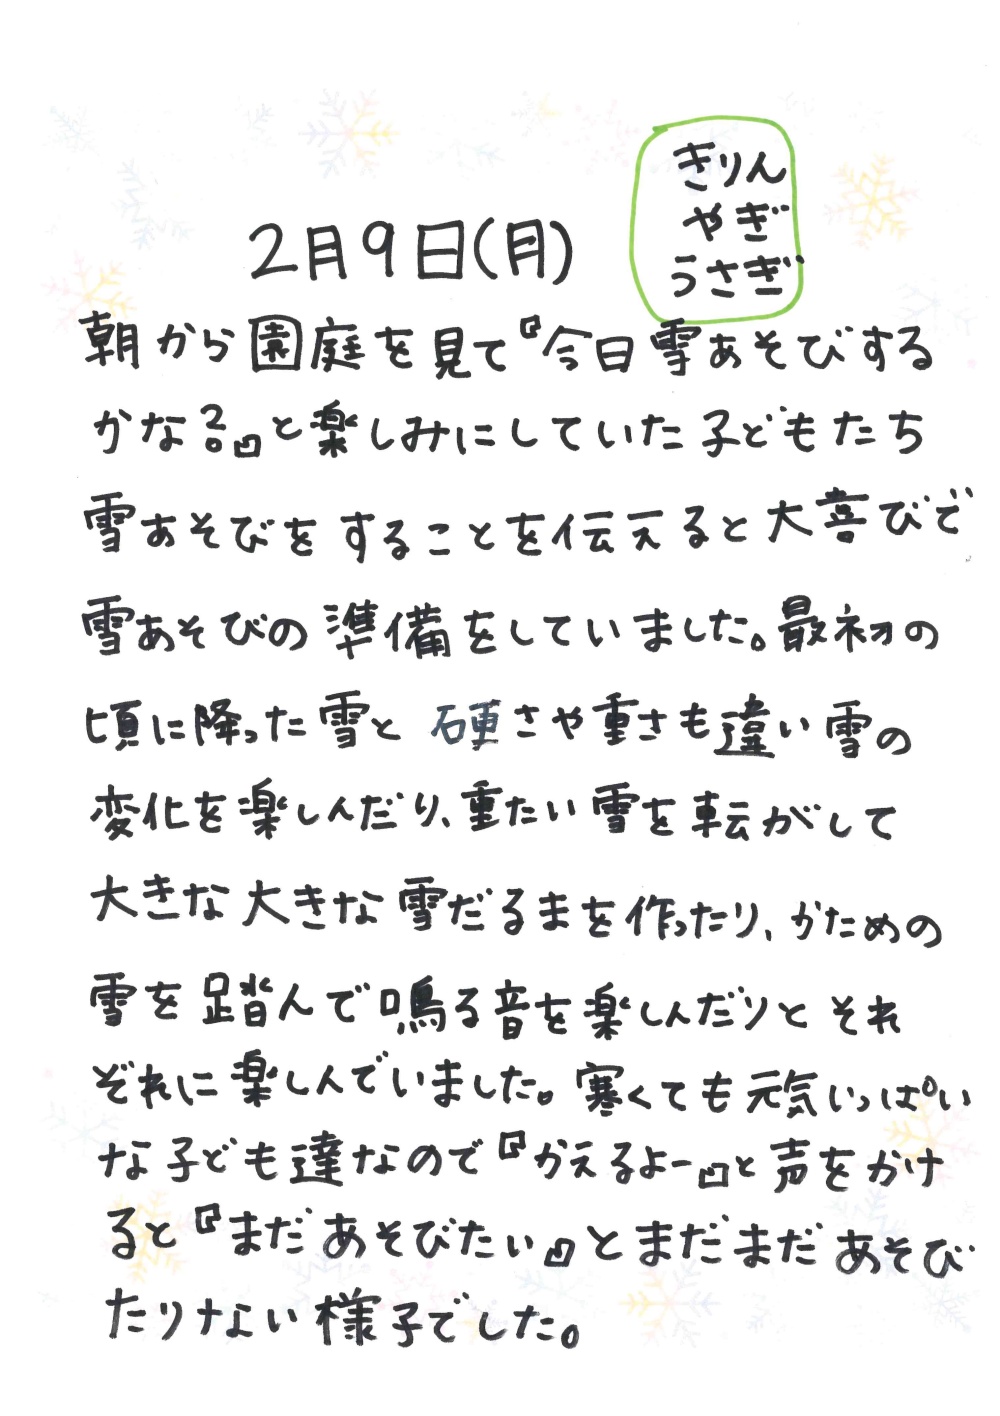 きりん
やぎ
うさぎ
2月9日(月)
朝から園庭を見て『今日雪あそびする
かな？』と楽しみにしていた子どもたち
雪あそびをすることを伝えると大喜びで
雪あそびの準備をしていました。最初の
頃に降った雪と硬さや重さも違い雪の
変化を楽しんだり、重たい雪を転がして
大きな大きな雪だるまを作ったり、かための
雪を踏んで鳴る音を楽しんだりとそれ
ぞれに楽しんでいました。寒くても元気いっぱい
な子ども達なので『かえるよー』と声をかけ
ると『まだあそびたい』とまだまだあそび
たりない様子でした。